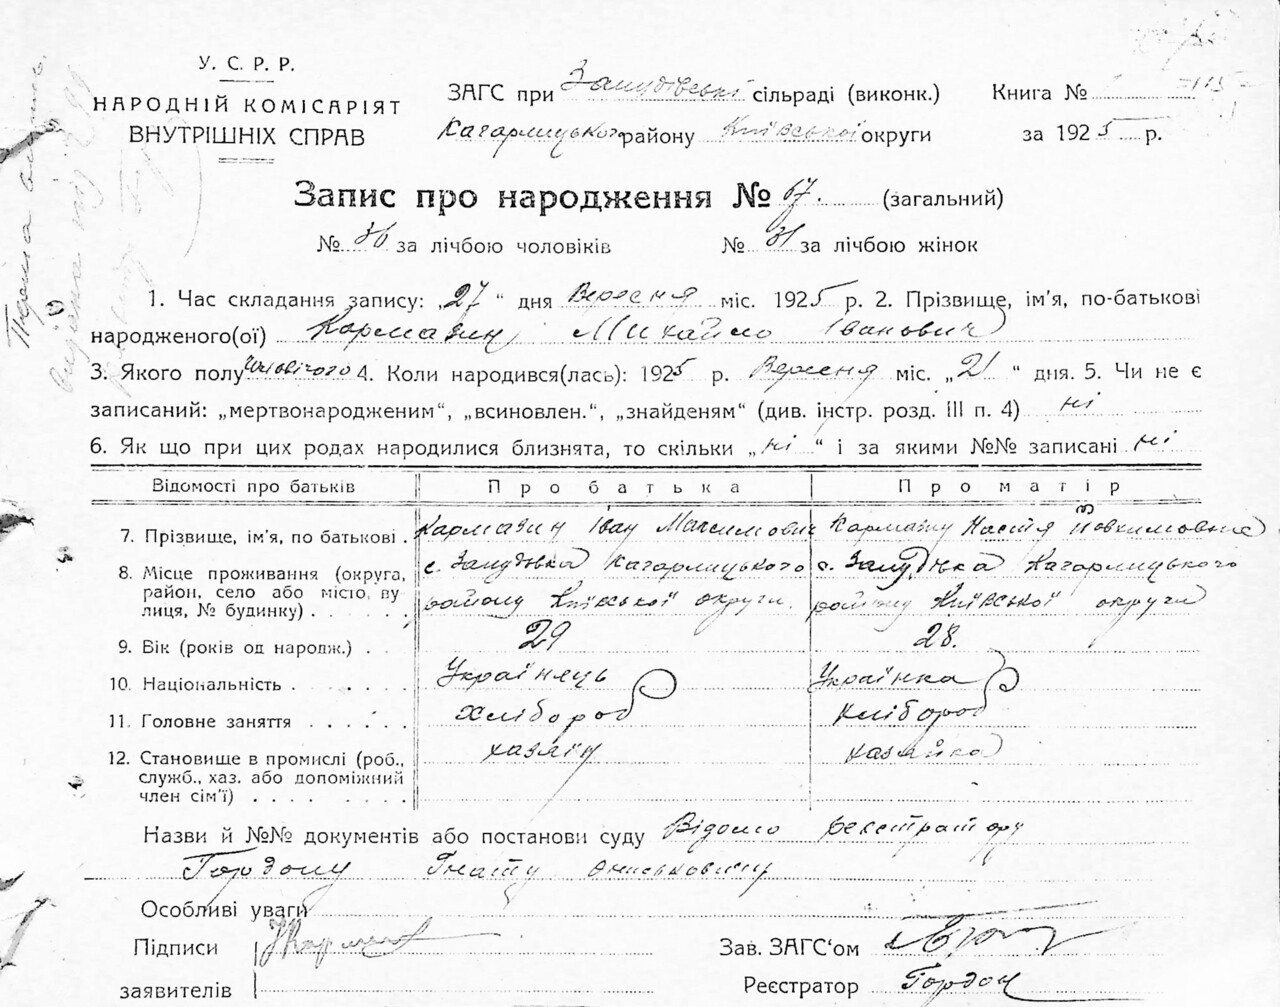 У. С. Р. Р.
НАРОДНІЙ КОМІСАРІЯТ
ВНУТРІШНІХ СПРАВ
ЗАГС при Залудівські сільраді (виконк.) Книга №
Кагарлицького району Київської округи за 1925 р.
Запис про народження № 67. (загальний)
№ 36 за лічбою чоловіків № 31 за лічбою жінок
1. Час складання запису: „27“ дня Вересня міс. 1925 р. 2. Прізвище, ім'я, по-батькові
народженого(ої) Кармазин Михайло Іванович
3. Якого полу Чоловічого 4. Коли народився(лась): 1925 р. Вересня міс. „21“ дня. 5. Чи не є
записаний: „мертвонародженим“, „всиновлен.“, „знайденям“ (див. інстр. розд. III п. 4) ні
6. Як що при цих родах народилися близнята, то скільки „ні“ і за якими №№ записані ні
Відомості про батьків Про батька Про матір
7. Прізвище, ім'я, по батькові . Кармазин Іван Максимович Кармазин Настя Йовхимовна
8. Місце проживання (округа, с. Залудівка Кагарлицького с. Залудівка Кагарлицького
район, село або місто, ву
лиця, № будинку) . . . . . району Київської округи. району Київської округи
9. Вік (років од народж.) . . 29 28.
10. Національність . . . . . . Українець Українка
11. Головне заняття . . . . . Хлібороб хлібороб
12. Становище в промислі (роб., хазяїн хазяйка
служб., хаз. або допоміжний
член сім'ї) . . . . . . . .
Назви й №№ документів або постанови суду Відомо реєстратору
Гордону Гнату Ониськовичу
Особливі уваги
Підписи Зав. ЗАГС'ом
заявителів Реєстратор Гордон